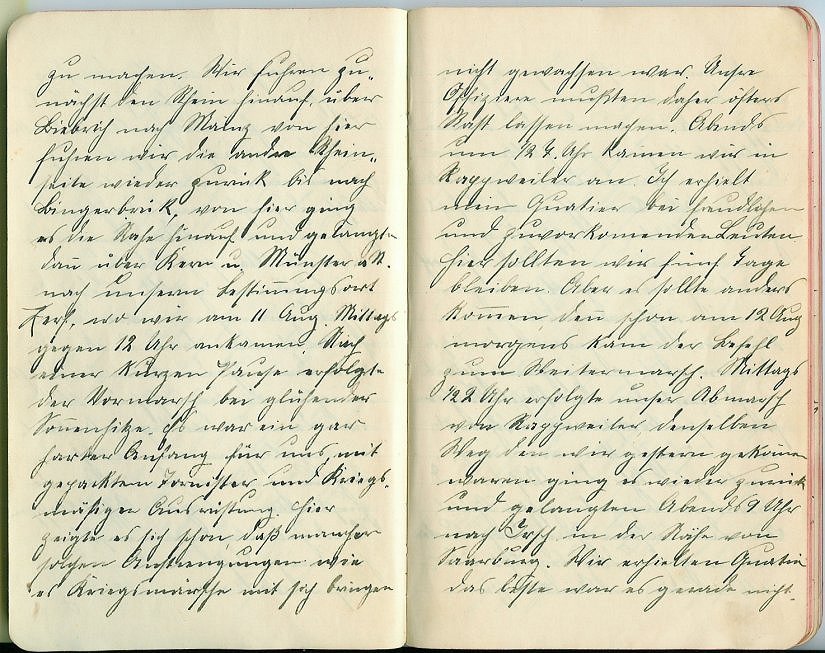 zu machen. Wir fuhren zu„
nächst den Rhein hinauf, über
Biebrich nach Mainz von hier
fuhren wir die andre Rhein„
seite wieder zurück bis nach
Bingerbrück, von hier ging
es die Nahe hinauf und gelangten
dan̄ über Kern u. Münster a. St.
nach unserm Bestim̄ungsort
Zerf, wo wir am 11 Aug. Mittags
gegen 12 Uhr ankamen. Nach
einer Kurzen Pause erfolgte
der Vormarsch bei glühender
Sonnenhitze. Es war ein gar
harter Anfang für uns, mit
gepackten Tornister und Kriegs-
mäßiger Ausrüstung. Hier
zeigte es sich schon, daß mancher
solchen Anstrengungen wie
es Kriegsmärsche mit sich bringen
nicht gewachsen war. Unsre
Offiziere mußten daher öfters
Rast lassen machen. Abends
um 1/2 7. Uhr Kamen wir in
Rappweiler an. Ich erhielt
mein Quatier bei freudlichen
und zuvorkomenden Leuten.
Hier sollten wir fünf Tage
bleiben. Aber es sollte anders
Kom̄en, den̄ schon am 12 Aug
morgens Kam der Befehl
zum Weitermarsch. Mittags
1/2 2 Uhr erfolgte unser Abmarsch
von Rappweiler denselben
Weg den wir gestern gekom̄en
waren ging es wieder zurück
und gelangten Abends 9 Uhr
nach Irsch in der Nähe von
Saarburg. Wir erhielten Quatier
das beste war es gerade nicht.